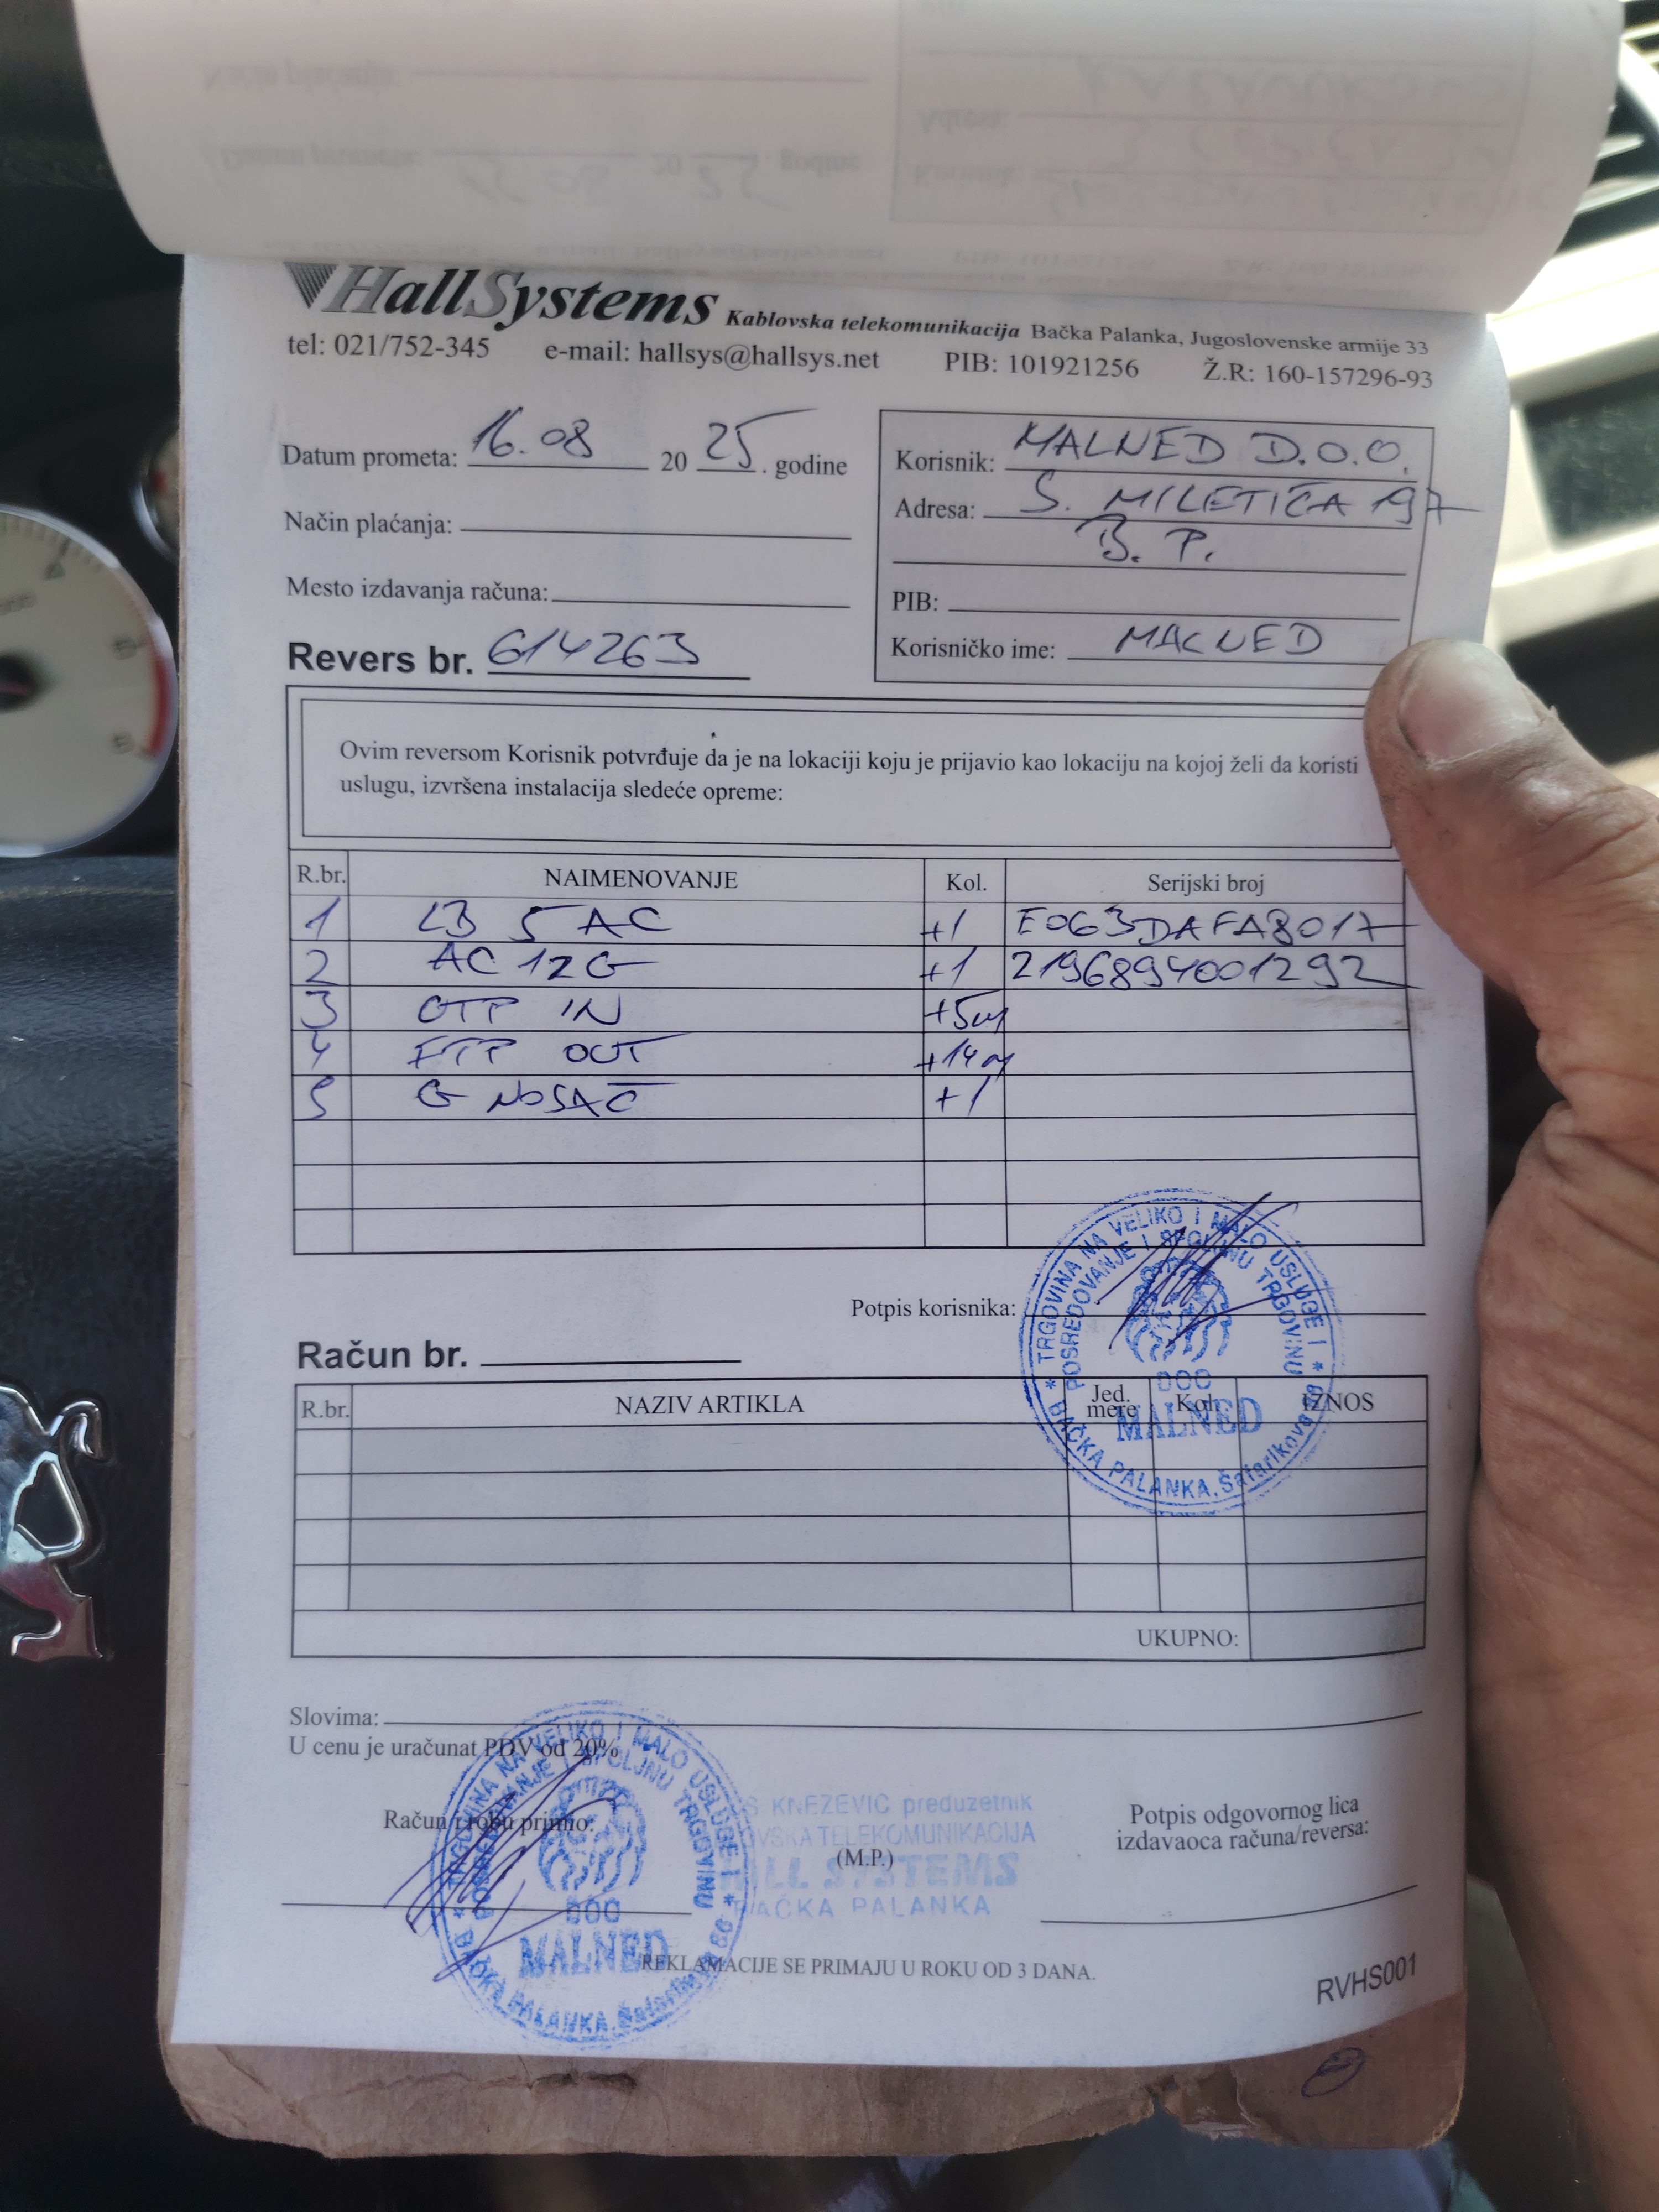 HallSystems Kablovska telekomunikacija Bačka Palanka, Jugoslovenske armije 33
tel: 021/752-345 e-mail: hallsys@hallsys.net PIB: 101921256 Ž.R: 160-157296-93
Datum prometa: 16.08 2025. godine
Način plaćanja:
Mesto izdavanja računa:
Revers br. 614263
Korisnik: MALNED D.O.O.
Adresa: S. MILETIĆA 197
B. P.
PIB:
Korisničko ime: MALNED
Ovim reversom Korisnik potvrđuje da je na lokaciji koju je prijavio kao lokaciju na kojoj želi da koristi
uslugu, izvršena instalacija sledeće opreme:
R.br. NAIMENOVANJE Kol. Serijski broj
1 LB 5 AC +1 E063DAFA8017
2 AC 12G +1 2196894001292
3 UTP IN +5m
4 FTP OUT +14m
5 G NOSAČ +1
Potpis korisnika:
TRGOVINA NA VELIKO I MALO USLUGE I
POSREDOVANJE I SPOLJNU TRGOVINU
DOO
MALNED
BAČKA PALANKA, Šafarikova
Račun br.
R.br. NAZIV ARTIKLA Jed. mere Kol. IZNOS
UKUPNO:
Slovima:
U cenu je uračunat PDV od 20%
Račun i robu primio:
TRGOVINA NA VELIKO I MALO USLUGE I
POSREDOVANJE I SPOLJNU TRGOVINU
DOO
MALNED
BAČKA PALANKA, Šafarikova
KNEZEVIC preduzetnik
TELEKOMUNIKACIJA
(M.P.)
HALL SYSTEMS
BAČKA PALANKA
Potpis odgovornog lica
izdavaoca računa/reversa:
REKLAMACIJE SE PRIMAJU U ROKU OD 3 DANA.
RVHS001